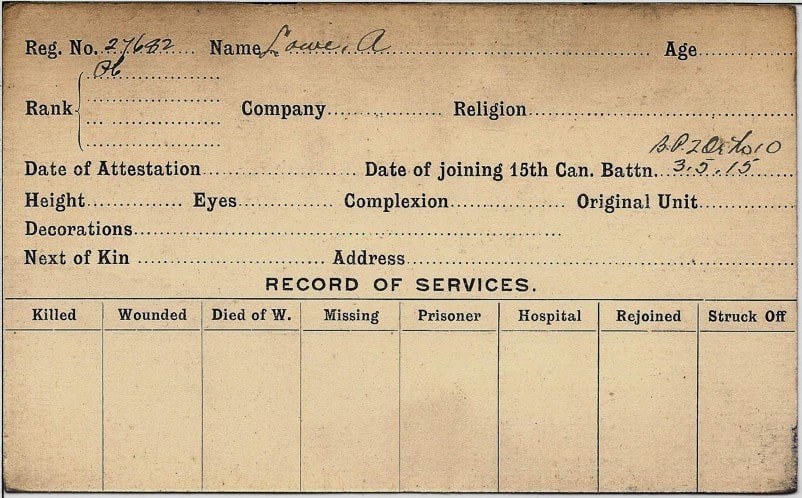 Reg. No. 27682 Name Lowe, A Age
Rank Pte
Company Religion
B.P. 2 O
Date of Attestation Date of joining 15th Can. Battn. 3.5.15
Height Eyes Complexion Original Unit
Decorations
Next of Kin Address
RECORD OF SERVICES.
Killed Wounded Died of W. Missing Prisoner Hospital Rejoined Struck Off